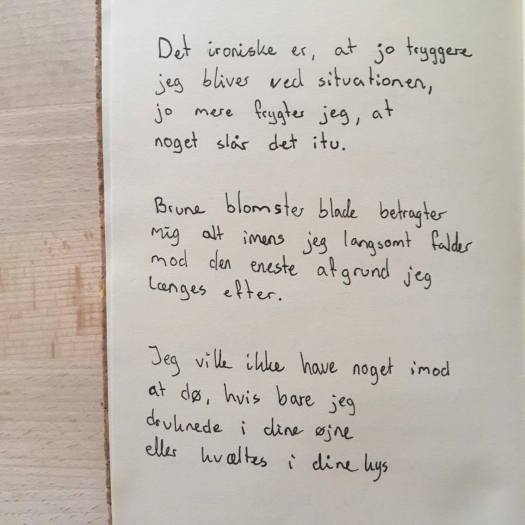 Det ironiske er, at jo tryggere
jeg blives ved situationen,
jo mere frygter jeg, at
noget slår det itu.
Brune blomster blade betragter
mig alt imens jeg langsomt falder
mod den eneste afgrund jeg
længes efter.
Jeg ville ikke have noget imod
at dø, hvis bare jeg
druknede i dine øjne
eller kvæltes i dine kys